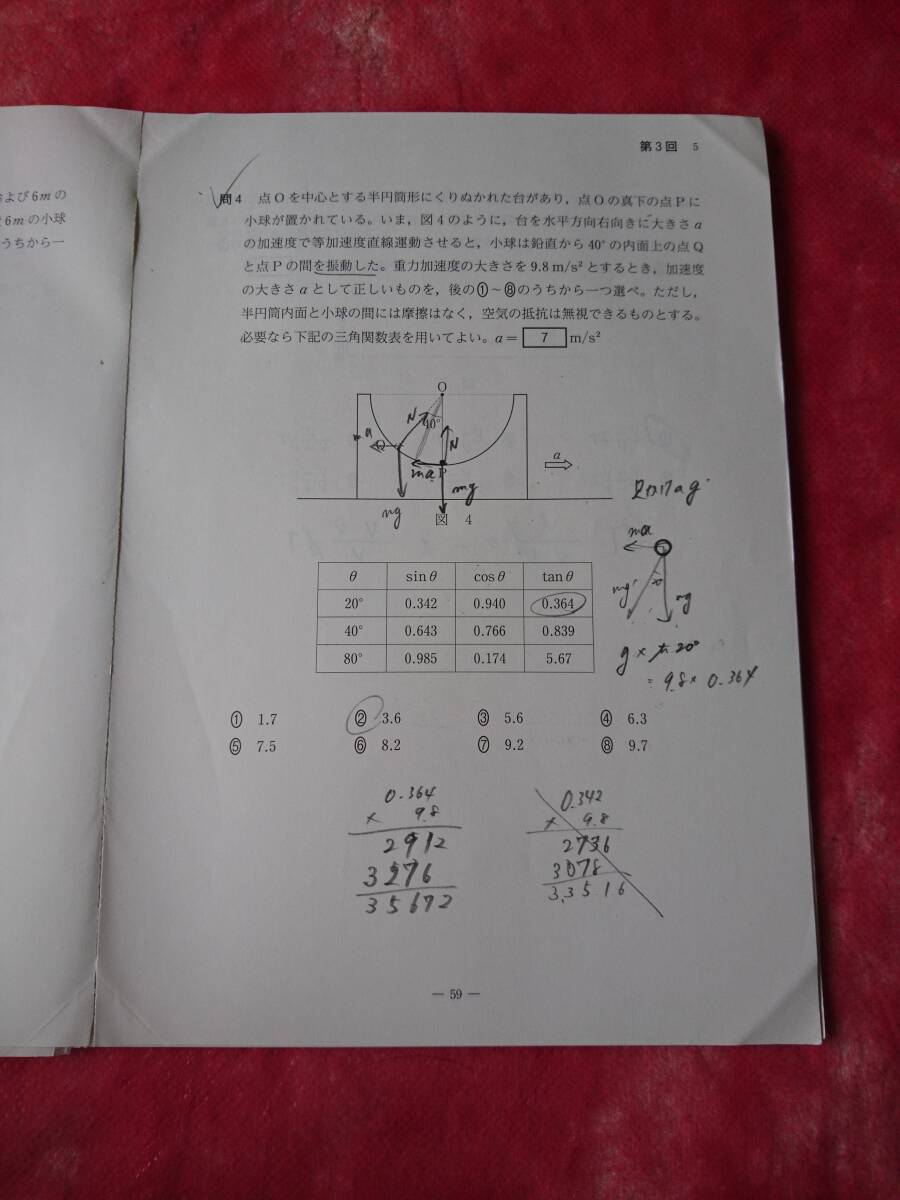 第3回 5
および6mの
6mの小球
うちから一
問4 点Oを中心とする半円筒形にくりぬかれた台があり,点Oの真下の点Pに
小球が置かれている。いま,図4のように,台を水平方向右向きに大きさa
の加速度で等加速度直線運動させると,小球は鉛直から40°の内面上の点Q
と点Pの間を振動した。重力加速度の大きさを9.8m/s²とするとき,加速度
の大きさaとして正しいものを,後の①~⑧のうちから一つ選べ。ただし,
半円筒内面と小球の間には摩擦はなく,空気の抵抗は無視できるものとする。
必要なら下記の三角関数表を用いてよい。a= 7 m/s²
O
N
40°
N
a
Q
ma
P
a
mg
mg
図 4
ma
mg'
mg
g×tan20°
=9.8×0.364
θ sinθ cosθ tanθ
20° 0.342 0.940 0.364
40° 0.643 0.766 0.839
80° 0.985 0.174 5.67
① 1.7 ② 3.6 ③ 5.6 ④ 6.3
⑤ 7.5 ⑥ 8.2 ⑦ 9.2 ⑧ 9.7
0.364
× 9.8
2912
3276
35672
0.342
× 9.8
2736
3078
3.3516
— 59 —